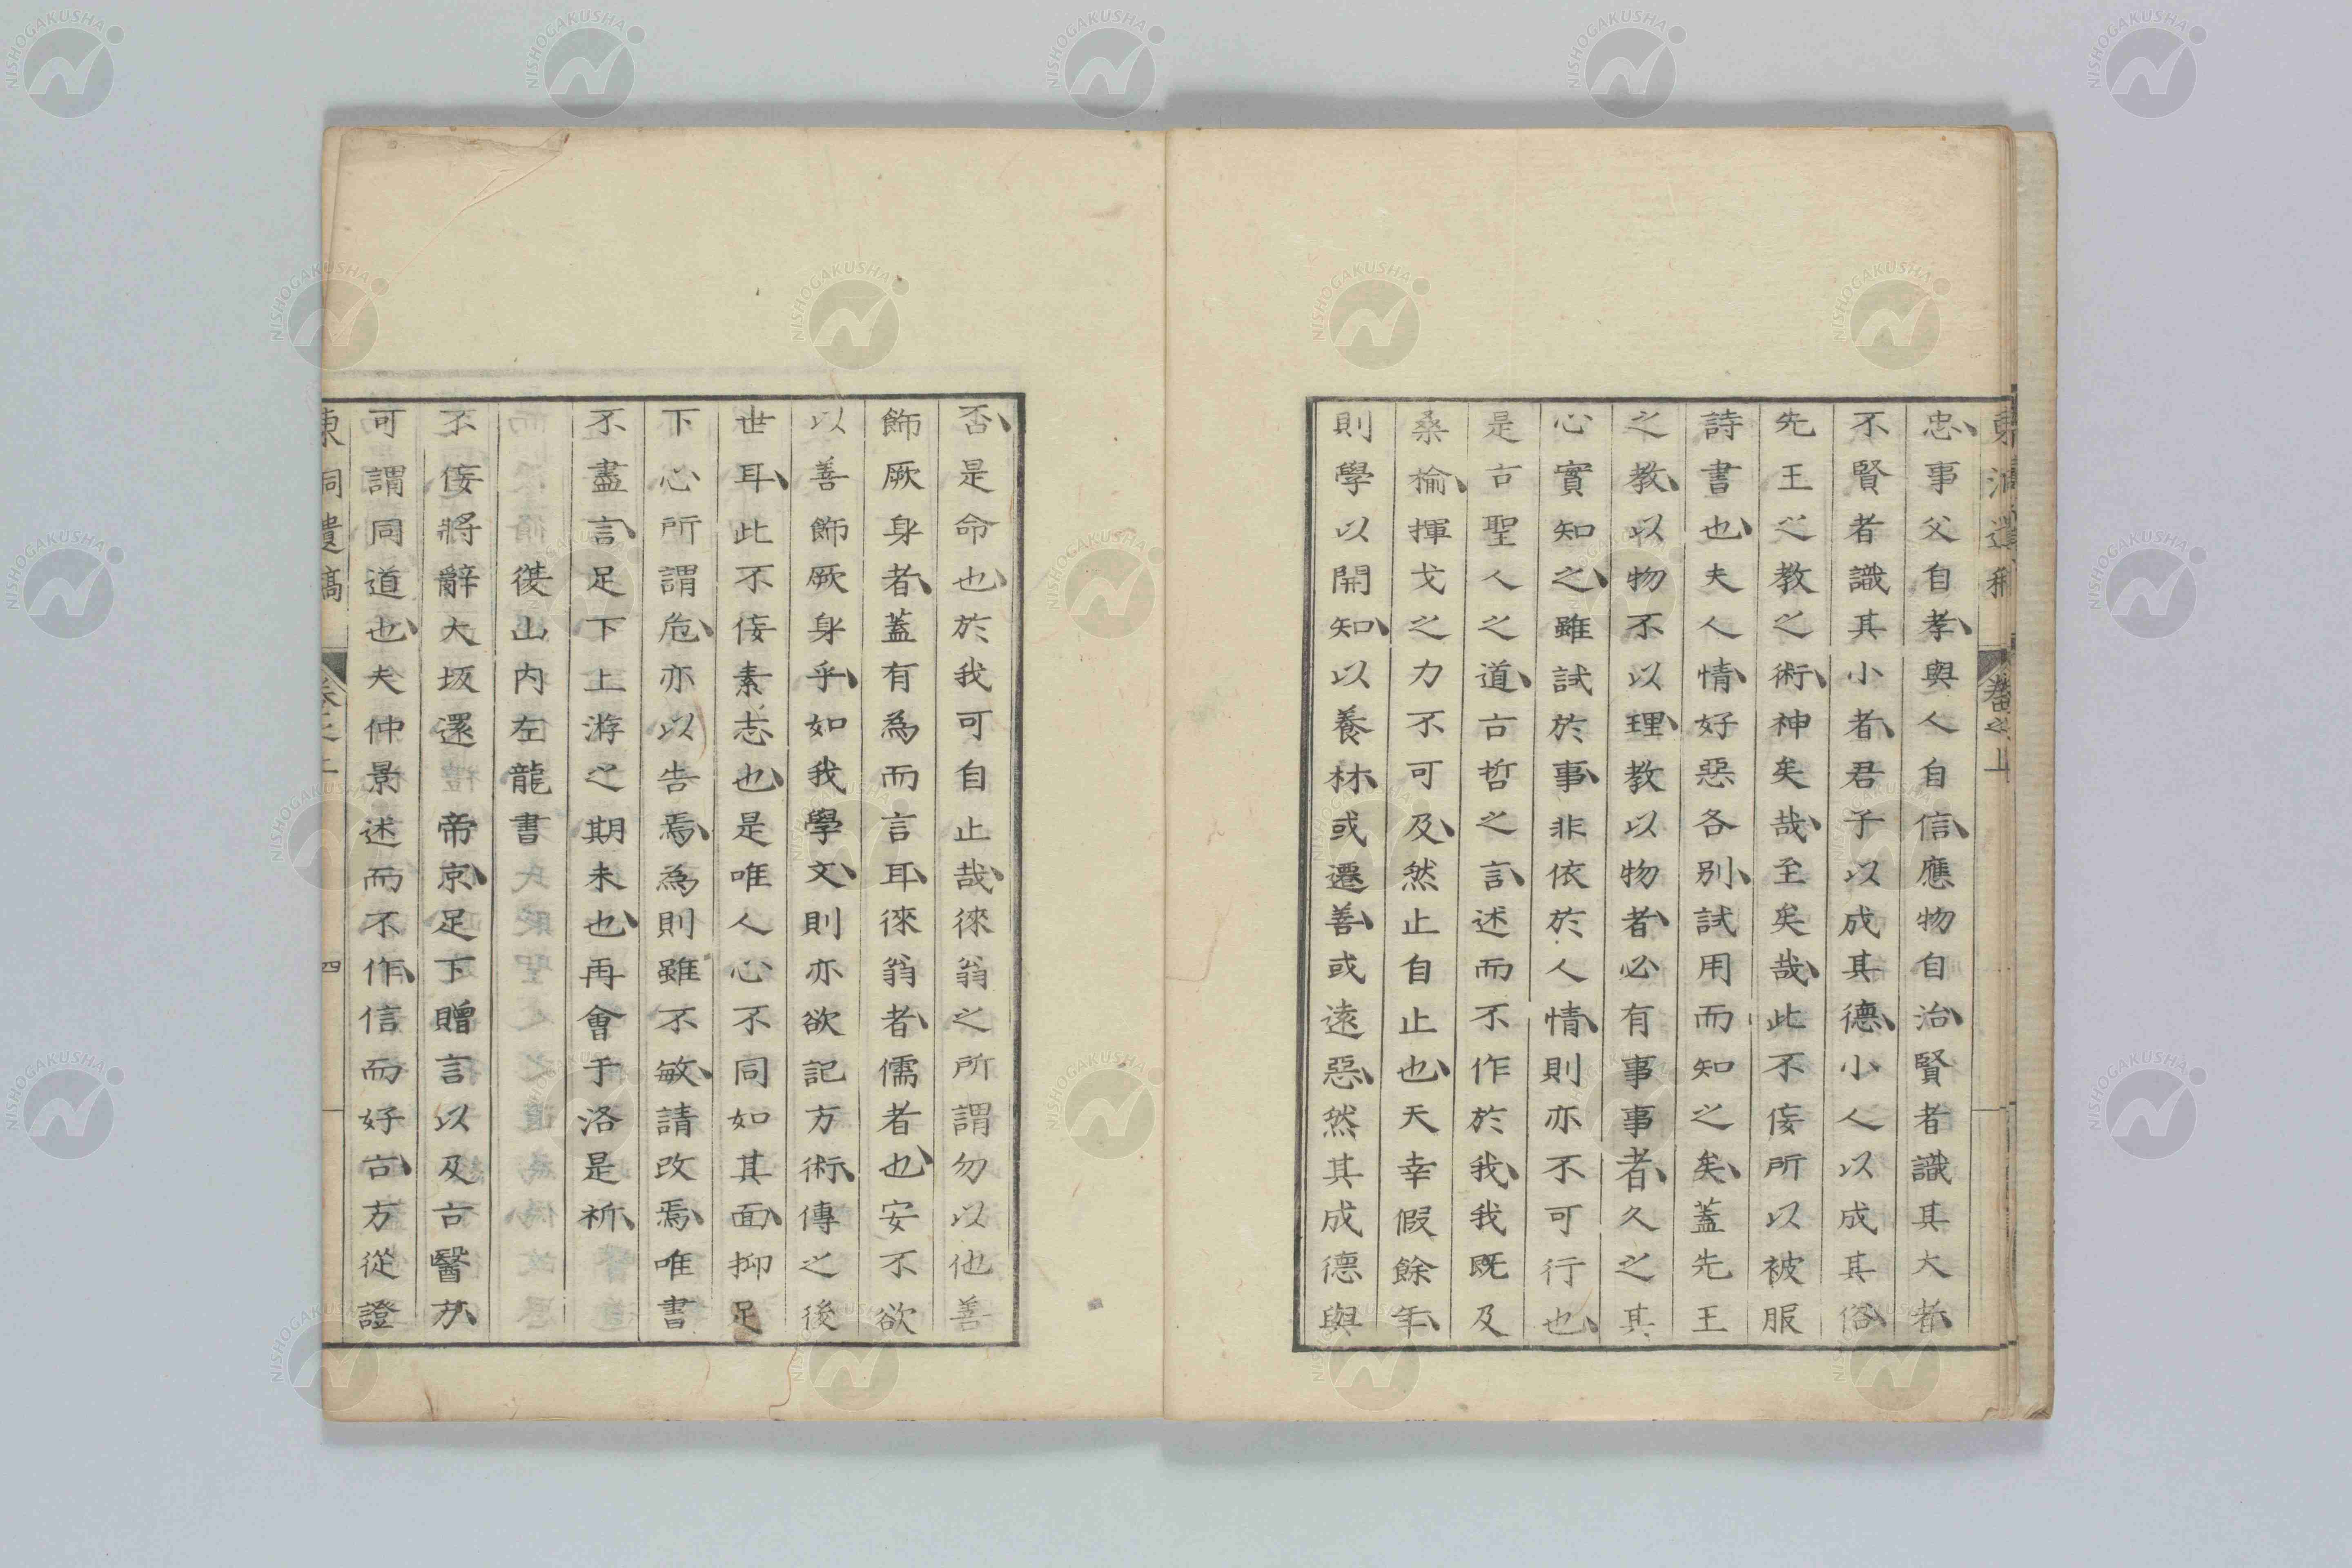 忠、事父自孝、與人自信、應物自治、賢者識其大者、
不賢者識其小者、君子以成其德、小人以成其俗、
先王之教之術、神矣哉、至矣哉、此不佞所以被服
詩書也、夫人情、好惡各別、試用而知之矣、蓋先王
之教、以物不以理、教以物者、必有事事者、久之其
心實知之、雖試於事、非依於人情、則亦不可行也、
是古聖人之道、古哲之言、述而不作於我、我既及
桑榆、揮戈之力不可及、然止自止也、天幸假餘年、
則學以開知、以養材、或遷善、或遠惡、然其成德與
否、是命也、於我可自止哉、徠翁之所謂勿以他善
飾厥身者、蓋有為而言耳、徠翁者、儒者也、安不欲
以善飾厥身乎、如我學文、則亦欲記方術、傳之後
世耳、此不佞素志也、是唯人心不同如其面、抑足
下心所謂危、亦以告焉、為則雖不敏、請改焉、唯書
不盡言、足下上游之期未也、再會于洛是祈、
復山内左龍書
不佞將辭大坂還帝京、足下贈言以及古醫方、
可謂同道也、夫仲景述而不作、信而好古、方從證
東洞遺稿 卷之上 四
NISHOGAKUSHA